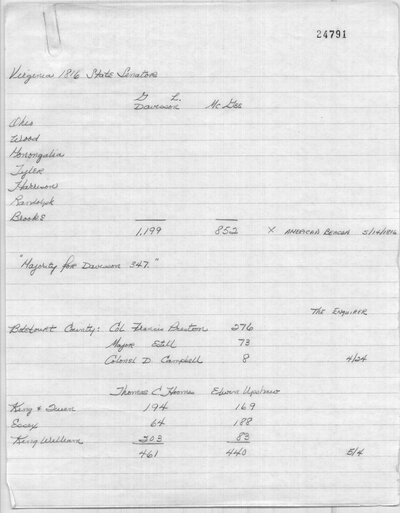 24791
Virginia 1816 State Senators
G. L. Davisson McGee
Ohio
Wood
Monongalia
Tyler
Harrison
Randolph
Brooke
1,199 852 X AMERICAN BEACON 5/14/1816
"Majority for Davisson 347."
THE ENQUIRER
Botetourt County: Col Francis Preston 276
Major Estill 73
Colonel D. Campbell 8 4/24
Thomas C. Hoomes Edwin Upshaw
King & Queen 194 169
Essex 64 188
King William 203 83
461 440 5/4